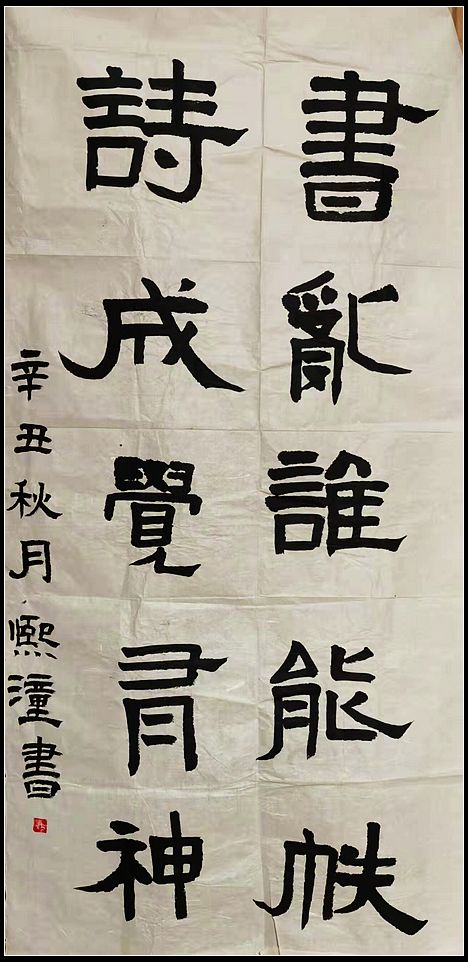 書亂誰能帙
詩成覺有神
辛丑秋月熙潼書